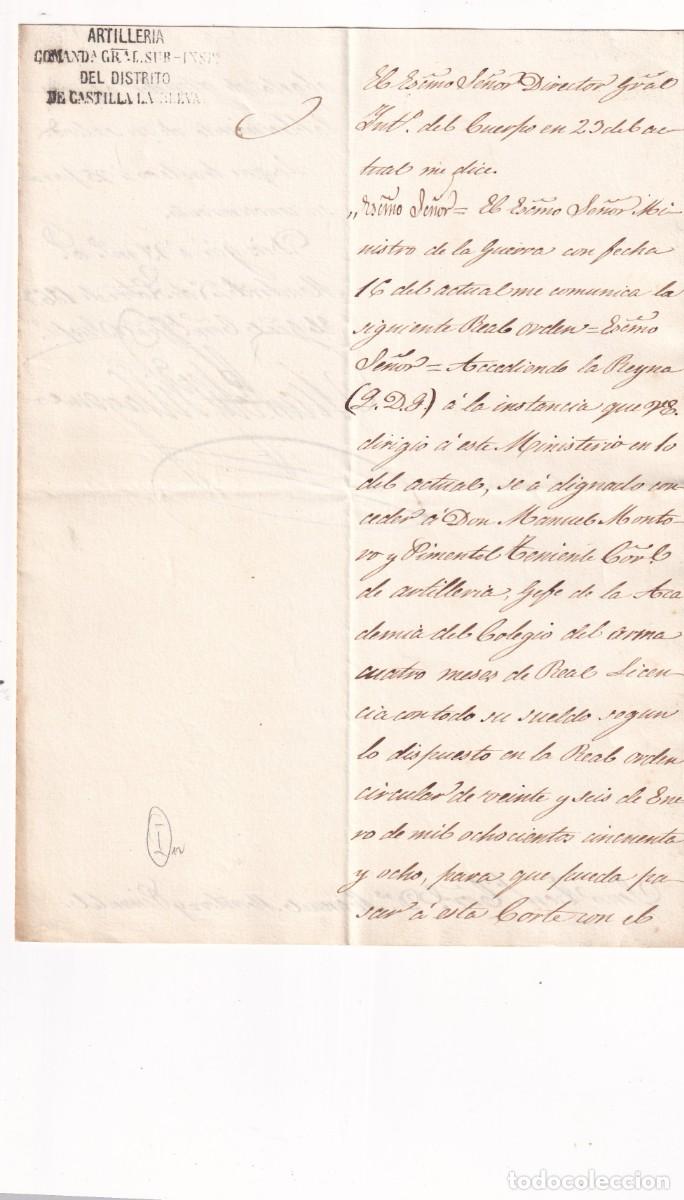 ARTILLERIA
COMANDA GRAL. SUB-INSP
DEL DISTRITO
DE CASTILLA LA NUEVA
El Escmo Señor Director Gral
Int.º del Cuerpo en 23 del ac-
tual me dice.
"Escmo Señor = El Escmo Señor Mi-
nistro de la Guerra con fecha
16 del actual me comunica la
siguiente Real orden = Escmo
Señor = Accediendo la Reyna
(Q.D.G.) á la instancia que V.E.
dirigio á este Ministerio en 10
del actual, se á dignado con-
ceder á Don Manuel Monto-
ro y Pimentel Teniente Cõrl.
de artilleria, Gefe de la Aca
demia del Colegio del arma
cuatro meses de Real Licen-
cia con todo su sueldo segun
lo dispuesto en la Real orden
circular de veinte y seis de Ene-
ro de mil ochocientos cincuenta
y ocho, para que pueda pa-
sar á esta Corte con el
todocoleccion